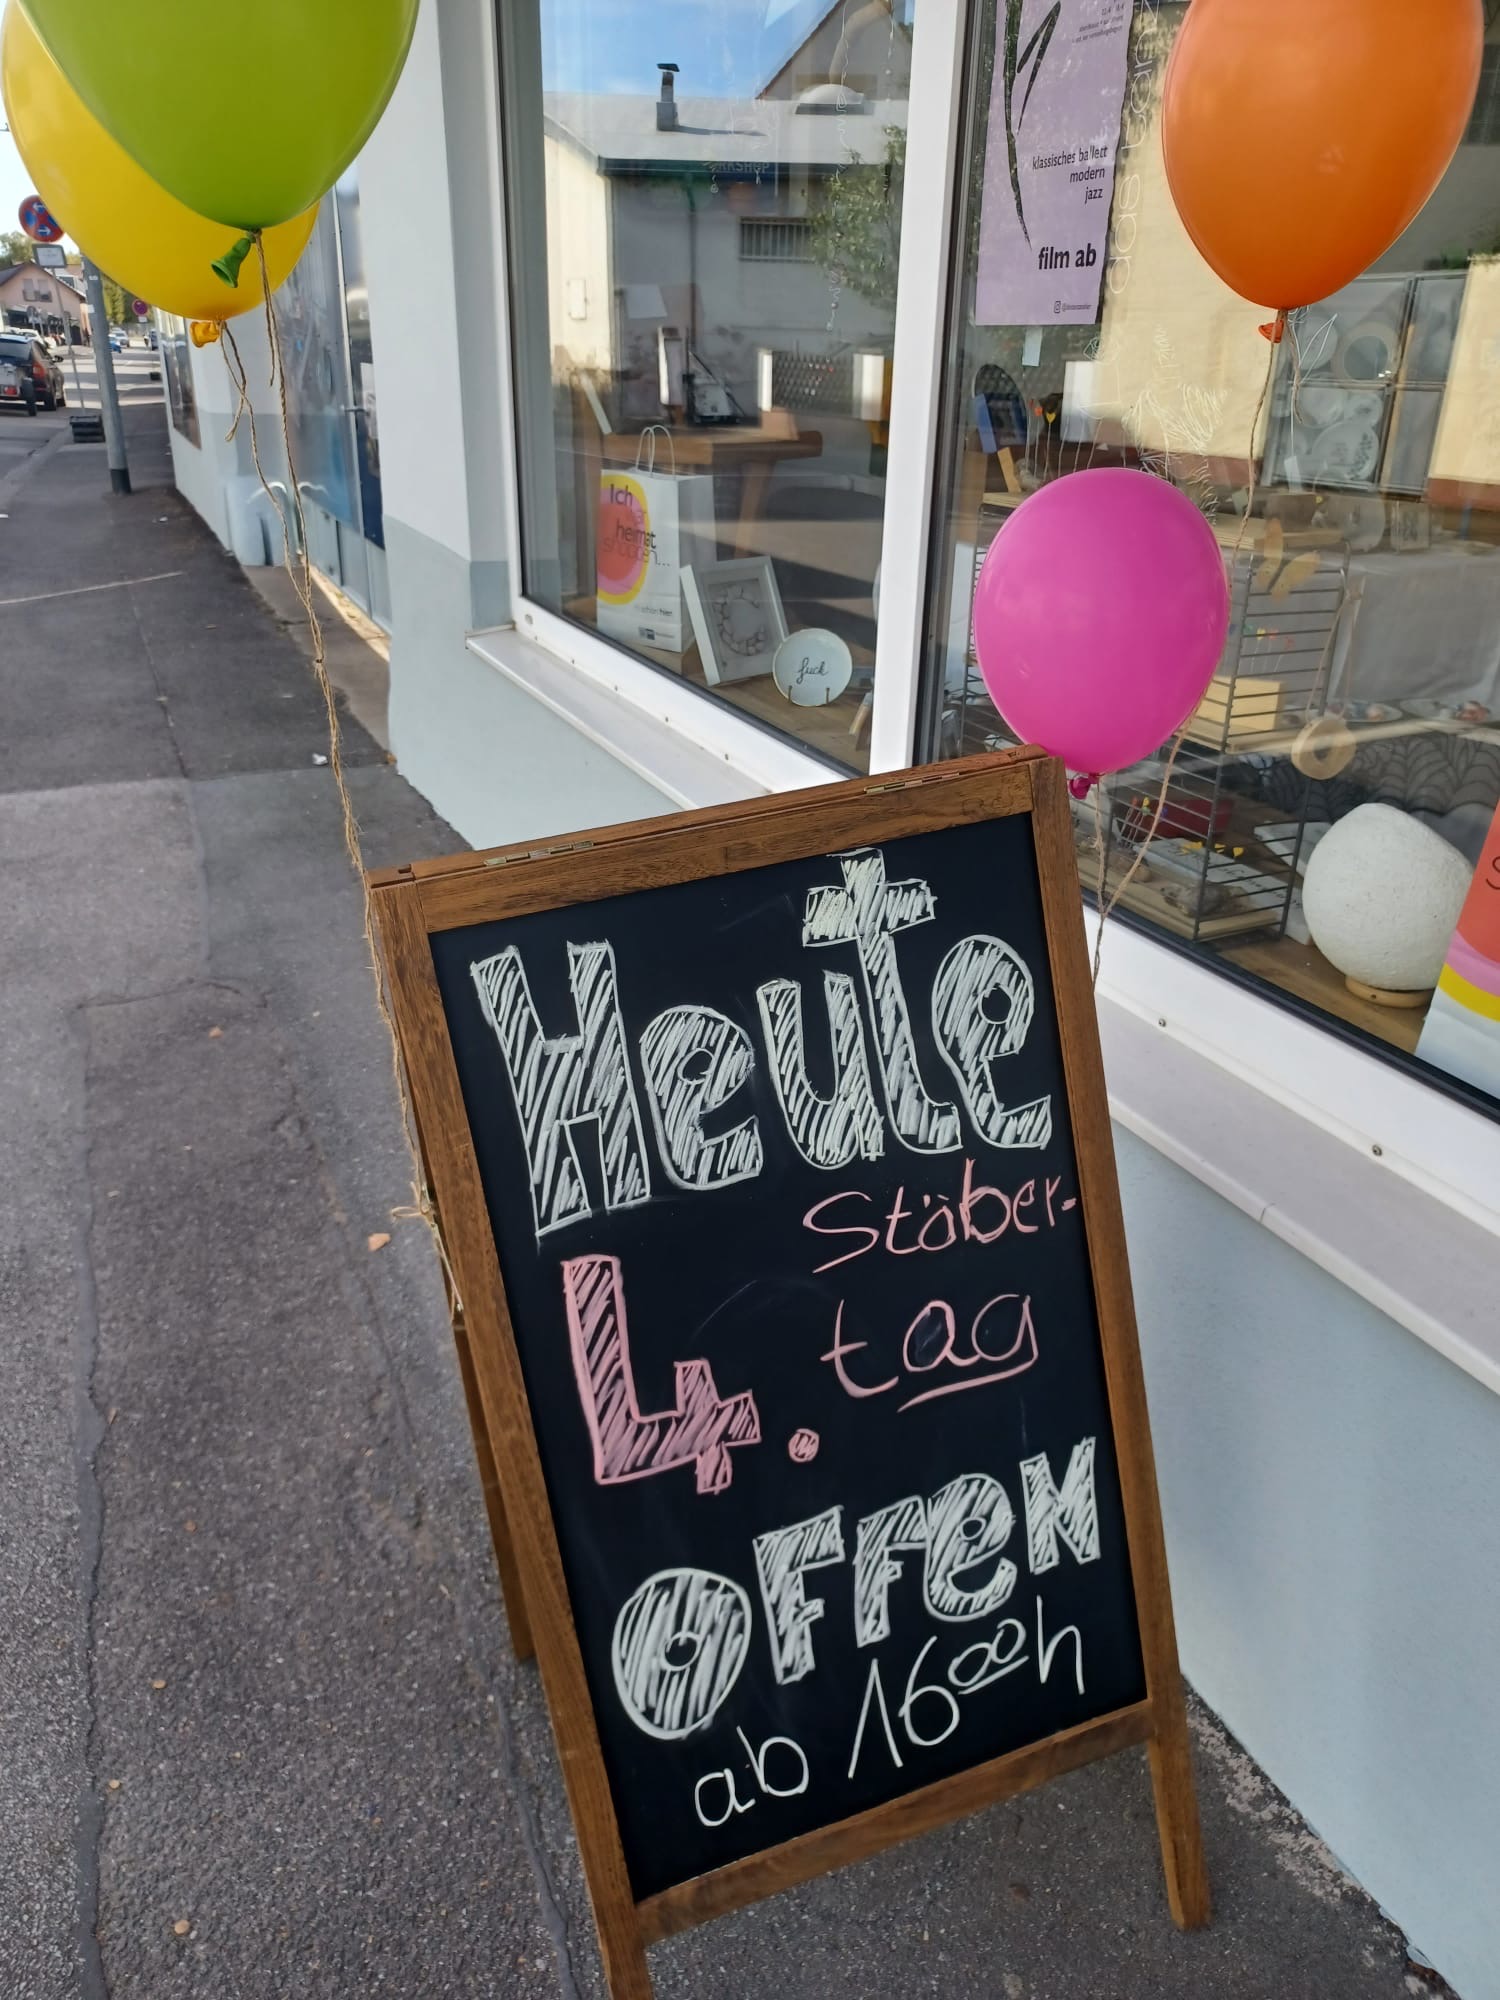 klassisches ballett
modern
jazz
film ab
Ich
war
heimat
shoppen...
fuck
Heute
Stöber-
4.
tag
OFFEN
ab 16 00 h